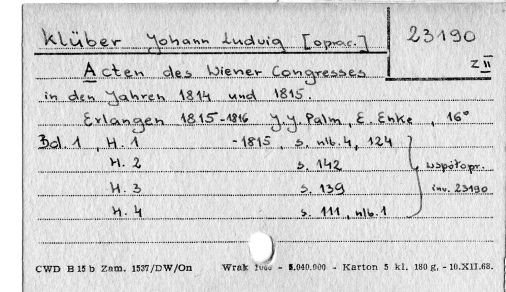 Klüber Johann Ludwig [oprac.] 23190
Z II
Acten des Wiener Congresses
in den Jahren 1814 und 1815.
Erlangen 1815-1816 J.J. Palm, E. Enke, 16°
Bd. 1, H. 1 -1815, s. nlb. 4, 124
H. 2 s. 142 współopr.
H. 3 s. 139 inw. 23190
H. 4 s. 111, nlb. 1
CWD B 15 b Zam. 1537/DW/On Wrak - 5.040.000 - Karton 5 kl. 180 g, - 10.XII.68.